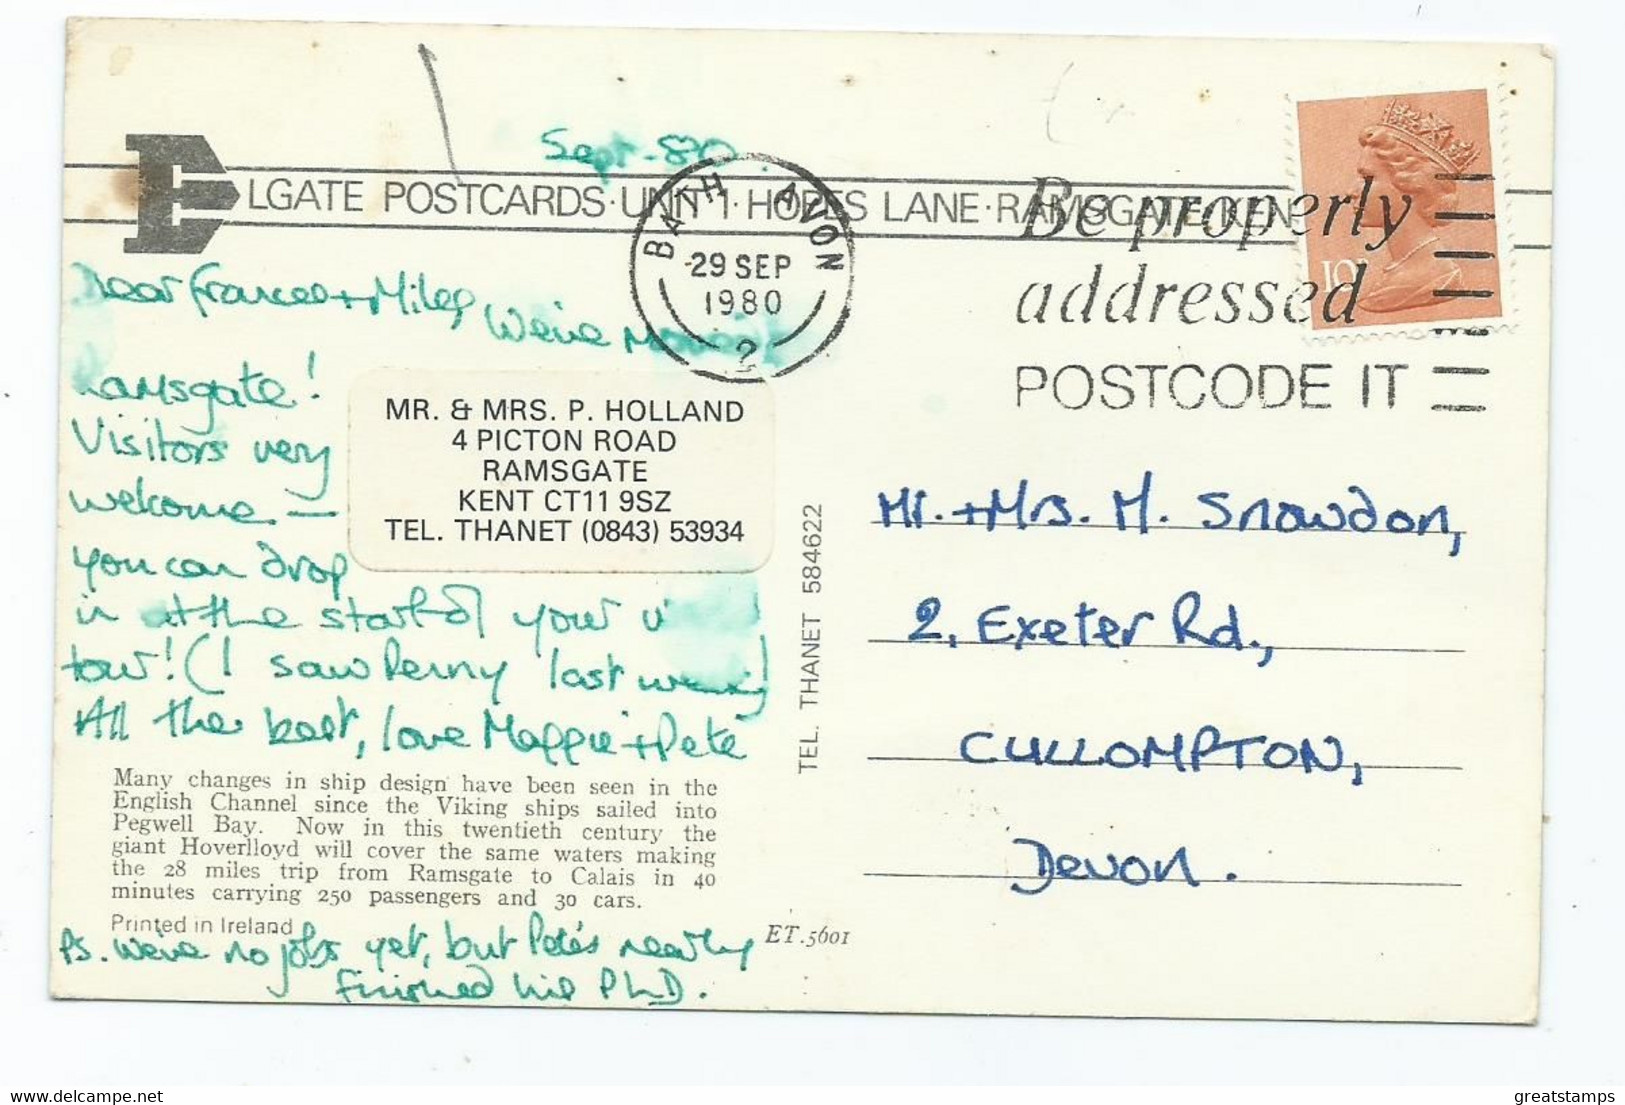 Sept. 80
ELGATE POSTCARDS · UNIT 1 · HOPES LANE · RAMSGATE · KENT
BATH AVON
29 SEP
1980
2
Be properly
addressed
POSTCODE IT
10P
Dear Frances + Miles
We've
Ramsgate!
Visitors very
welcome —
you can drop
in at the start of your
tour! (I saw Penny last
All the best, love Maggie + Pete
MR. & MRS. P. HOLLAND
4 PICTON ROAD
RAMSGATE
KENT CT11 9SZ
TEL. THANET (0843) 53934
Many changes in ship design have been seen in the
English Channel since the Viking ships sailed into
Pegwell Bay. Now in this twentieth century the
giant Hoverlloyd will cover the same waters making
the 28 miles trip from Ramsgate to Calais in 40
minutes carrying 250 passengers and 30 cars.
Printed in Ireland
ET.5601
Ps. We've no jobs yet, but Pete's nearly
finished his PhD.
TEL. THANET 584622
Mr. + Mrs. M. Snowdon,
2, Exeter Rd.,
CULLOMPTON,
Devon.
delcampe.net
greatstamps